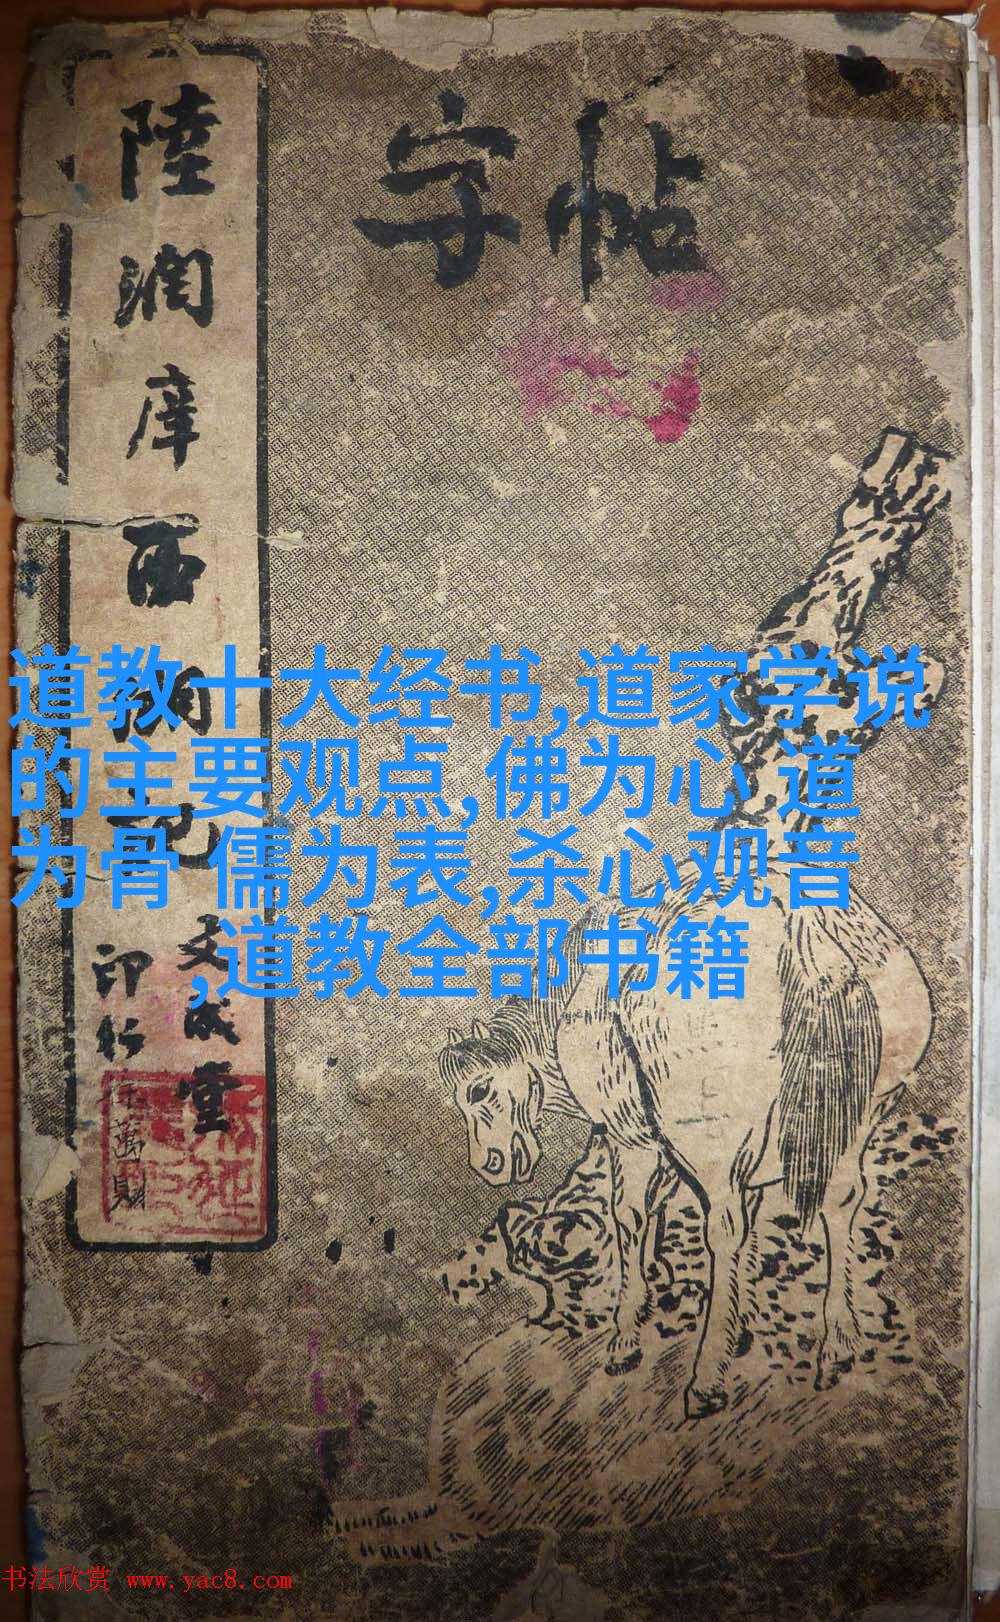 字帖
陸潤庠西湖記
文成堂
印行
萬財
道教十大经书,道家学说
的主要观点,佛为心 道
为骨 儒为表,杀心观音
,道教全部书籍
书法欣赏 www.yac8.com